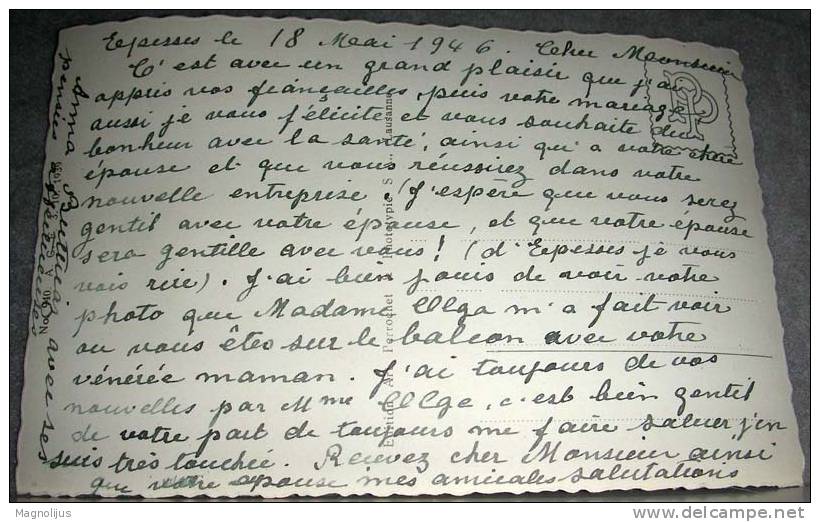 Epesses le 18 Mai 1946. Cher Monsieur
C'est avec un grand plaisir que j'ai
appris vos fiançailles, puis votre mariage
aussi je vous félicite et vous souhaite du
bonheur avec la santé, ainsi qu'a votre chère
épouse et que vous réussirez dans votre
nouvelle entreprise. (J'espère que vous serez
gentil avec votre épouse, et que votre épouse
sera gentille avec vous! (d'Epesses je vous
vois rire). J'ai bien jouis de voir votre
photo que Madame Olga m'a fait voir
ou vous êtes sur le balcon avec votre
vénérée maman. J'ai toujours de vos
nouvelles par Mme Olga, c'est bien gentil
de votre part de toujours me faire saluer j'en
suis très touchée. Recevez cher Monsieur ainsi
que votre epouse mes amicales salutations
avec ses
pensées
Perrochet
Phototypie
Lausanne
Magnolijus
delcampe.net